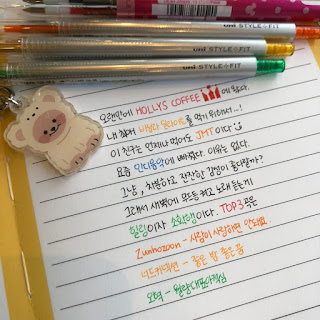 uni STYLE+FIT
uni STYLE+FIT
uni STYLE+FIT
오랜만에 HOLLYS COFFEE 에 왔다.
내 최애 바닐라 딜라이트를 먹기 위해서...!
이 친구는 언제나 먹어도 JMT 이다
요즘 인디음악에 빠졌다. 이유는 없다.
그냥, 차분하고 잔잔한 감성이 좋다랄까?
그래서 새벽에 무드등 켜고 노래 듣는게
힐링이자 소확행이다. TOP3 곡은
Zunhozoon - 사람이 사랑하면 안돼요.
너드커넥션 - 좋은 밤 좋은 꿈
오덕 - 월량대표아적심